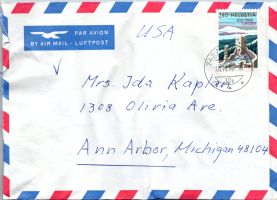 PAR AVION
BY AIR MAIL - LUFTPOST
USA
140 HELVETIA
Mrs. Ida Kaplan
1308 Olivia Ave.
Ann Arbor, Michigan 48104